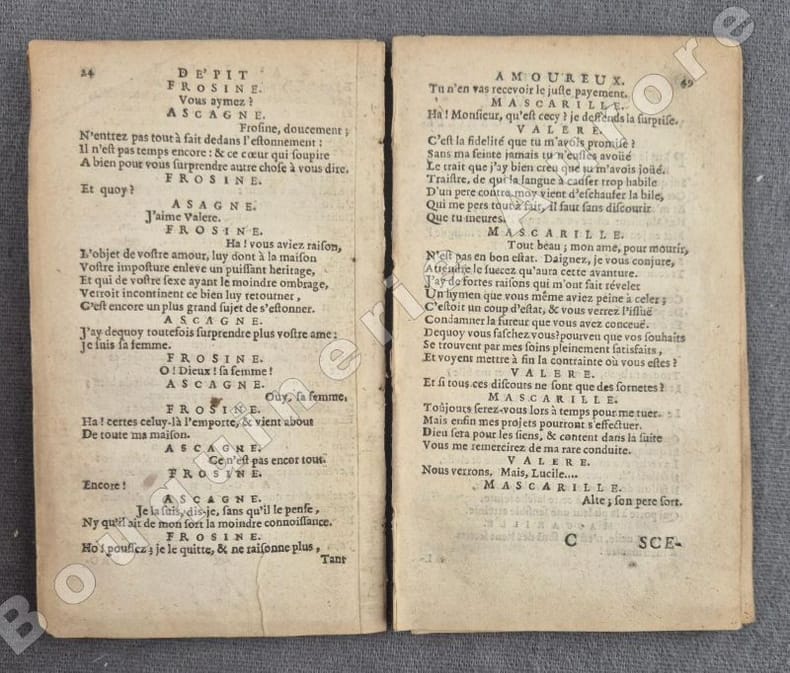 24 DE'PIT
FROSINE.
Vous aymez ?
ASCAGNE.
Frosine, doucement ;
N'entrez pas tout à fait dedans l'estonnement :
Il n'est pas temps encore : & ce cœur qui soupire
A bien pour vous surprendre autre chose à vous dire.
FROSINE.
Et quoy ?
ASAGNE.
J'aime Valere.
FROSINE.
Ha ! vous aviez raison,
L'objet de vostre amour, luy dont à la maison
Vostre imposture enleve un puissant heritage,
Et qui de vostre sexe ayant le moindre ombrage,
Verroit incontinent ce bien luy retourner,
C'est encore un plus grand sujet de s'estonner.
ASCAGNE.
J'ay dequoy toutefois surprendre plus vostre ame :
Je suis sa femme.
FROSINE.
O ! Dieux ! sa femme !
ASCAGNE.
Ouy, sa femme,
FROSINE.
Ha ! certes celuy-là l'emporte, & vient about
De toute ma maison.
ASCAGNE.
Ce n'est pas encor tout.
FROSINE.
Encore !
ASCAGNE.
Je la suis, dis-je, sans qu'il le pense,
Ny qu'il ait de mon sort la moindre connoissance.
FROSINE.
Ho ! poussez ; je le quitte, & ne raisonne plus,
Tant
AMOUREUX. 49
Tu n'en vas recevoir le juste payement.
MASCARILLE.
Ha ! Monsieur, qu'est cecy ? je deffends la surprise.
VALERE.
C'est la fidelité que tu m'avois promise ?
Sans ma feinte jamais tu n'eusses avoüé
Le trait que j'ay bien creu que tu m'avois joüé.
Traistre, de qui la langue à causer trop habile
D'un pere contre moy vient d'eschaufer la bile,
Qui me pers tout à fait, il faut sans discourir
Que tu meures.
MASCARILLE.
Tout beau ; mon ame, pour mourir,
N'est pas en bon estat. Daignez, je vous conjure,
Attendre le succez qu'aura cette avanture.
J'ay de fortes raisons qui m'ont fait réveler
Un hymen que vous même aviez peine à celer ;
C'estoit un coup d'estat, & vous verrez l'issuë
Condamner la fureur que vous avez conceuë.
Dequoy vous faschez vous ? pourveu que vos souhaits
Se trouvent par mes soins pleinement satisfaits,
Et voyent mettre à fin la contrainte où vous estes ?
VALERE.
Et si tous ces discouts ne sont que des sornetes ?
MASCARILLE.
Toûjours serez-vous lors à temps pour me tuer.
Mais enfin mes projets pourront s'effectuer.
Dieu sera pour les siens, & content dans la suite
Vous me remercirez de ma rare conduite.
VALERE.
Nous verrons, Mais, Lucile....
MASCARILLE.
Alte ; son pere sort.
C SCE-
Bouquinerie Aurore